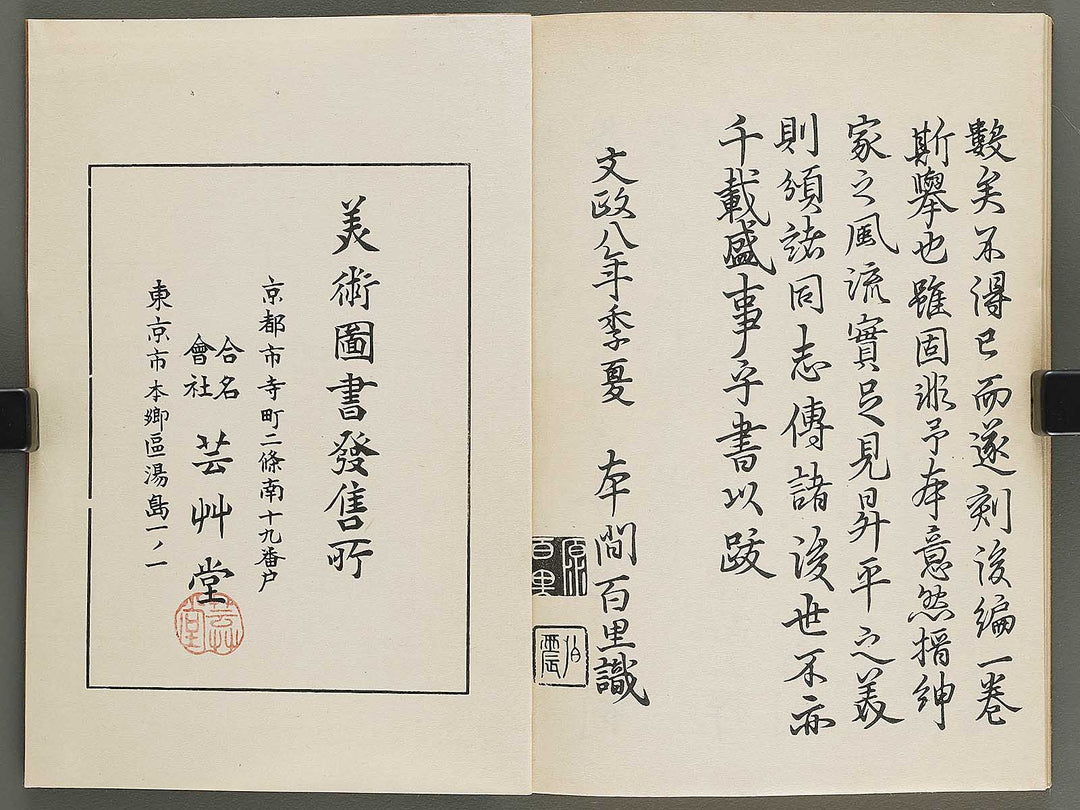 數矣不得已而遂刻後編一卷
斯舉也雖固非予本意然搢紳
家之風流實足見昇平之美
則頒諸同志傳諸後世不亦
千載盛事乎書以跋
文政八年季夏 本間百里識
原
百里
伯
震
美術圖書發售所
京都市寺町二條南十九番戸
合名
會社
芸艸堂
東京市本郷區湯島一ノ一
芸艸
堂